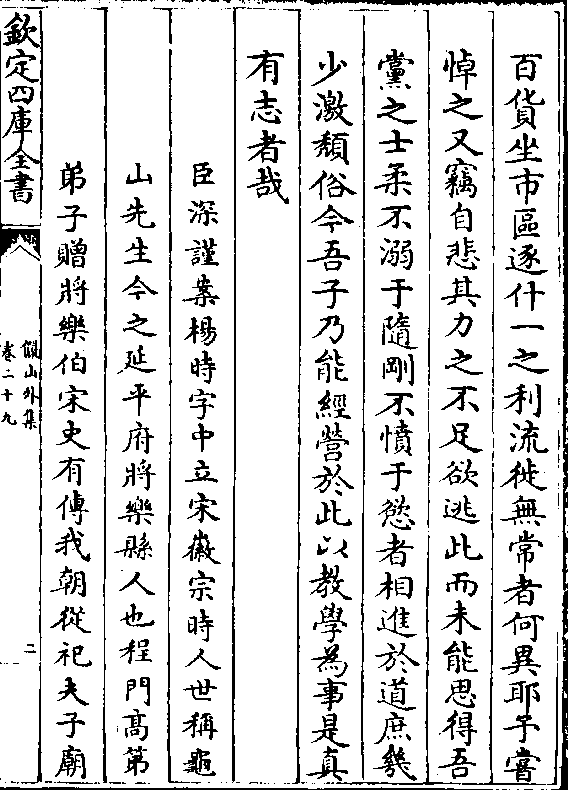 百貨坐市區逐什一之利流徙無常者何異耶予嘗
悼之又竊自悲其力之不足欲逃此而未能思得吾
黨之士柔不溺于隨剛不憤于慾者相進於道庶幾
少激頹俗今吾子乃能經營於此以教學為事是真
有志者哉
臣深謹案楊時字中立宋徽宗時人世稱龜
山先生今之延平府將樂縣人也程門高第
弟子贈將樂伯宋史有傳我朝從祀夫子廟
欽定四庫全書
儼山外集
卷二十九
二